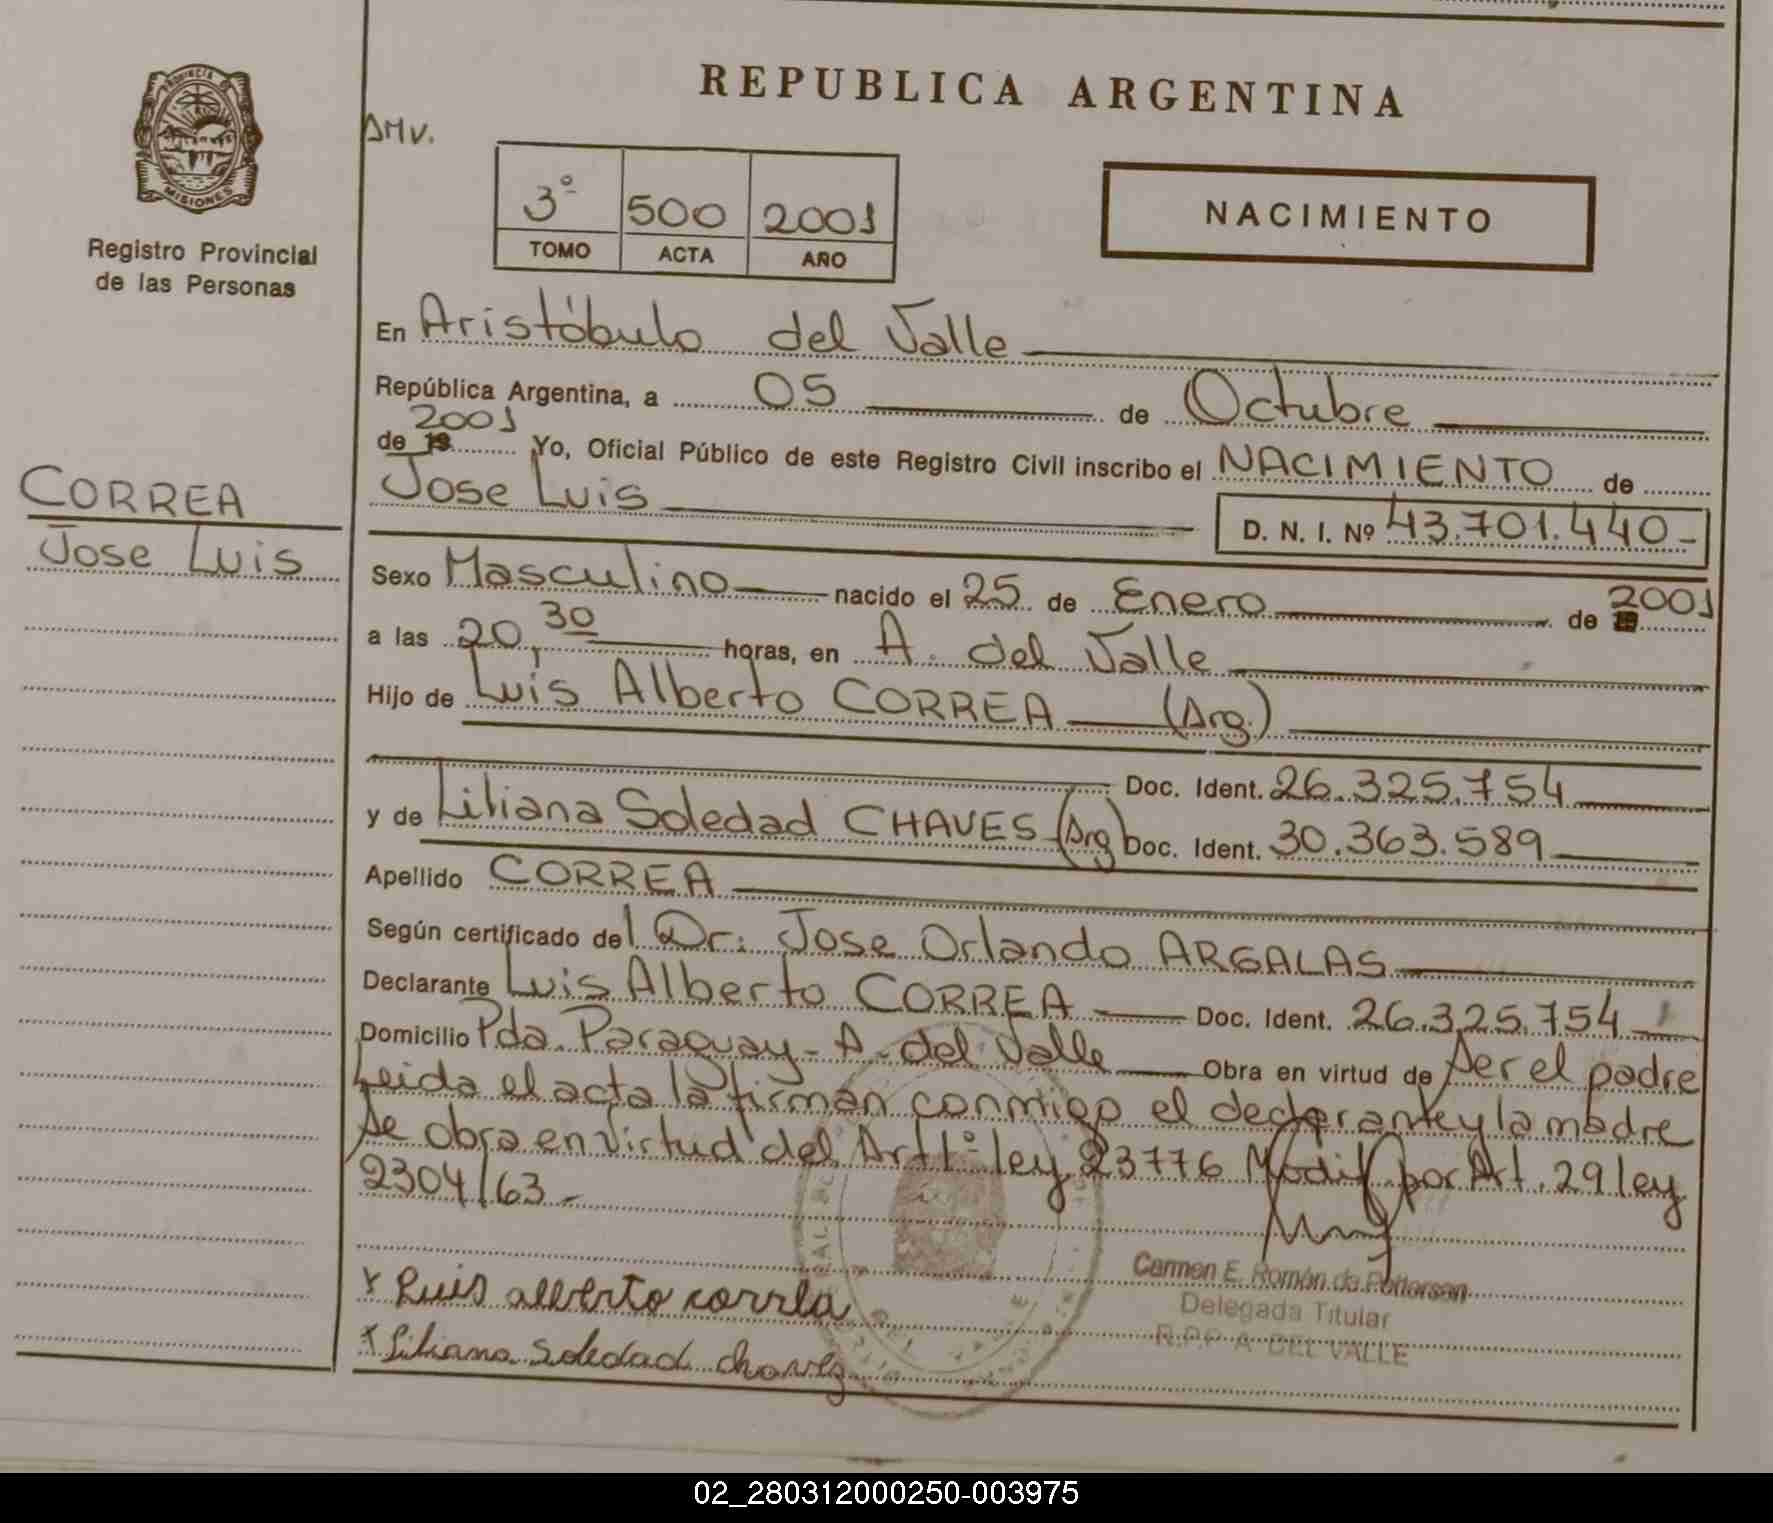 REPUBLICA ARGENTINA
PROVINCIA DE
MISIONES
Registro Provincial
de las Personas
AMV.
3º 500 2001
TOMO ACTA AÑO
NACIMIENTO
CORREA
Jose Luis
En Aristóbulo del Valle
República Argentina, a 05 de Octubre
de 19 2001 Yo, Oficial Público de este Registro Civil inscribo el NACIMIENTO de
Jose Luis D. N. I. Nº 43.701.440-
Sexo Masculino nacido el 25 de Enero de 2001
a las 20,30 horas, en A. del Valle
Hijo de Luis Alberto CORREA (Arg.)
Doc. Ident. 26.325.754
y de Liliana Soledad CHAVES (Arg) Doc. Ident. 30.363.589
Apellido CORREA
Según certificado del Dr: Jose Orlando ARGALAS
Declarante Luis Alberto CORREA Doc. Ident. 26.325.754
Domicilio Pda. Paraguay - A. del Valle Obra en virtud de ser el padre
Leida el acta la firman conmigo el declarante y la madre
Se obra en virtud del Art 1º ley 23776 Modif. por Art. 29 ley
2304/63-
Carmen E. Román de Petterson
Delegada Titular
R.P.P A DEL VALLE
x Luis alberto correa
x Liliana Soledad chavez
02_280312000250-003975